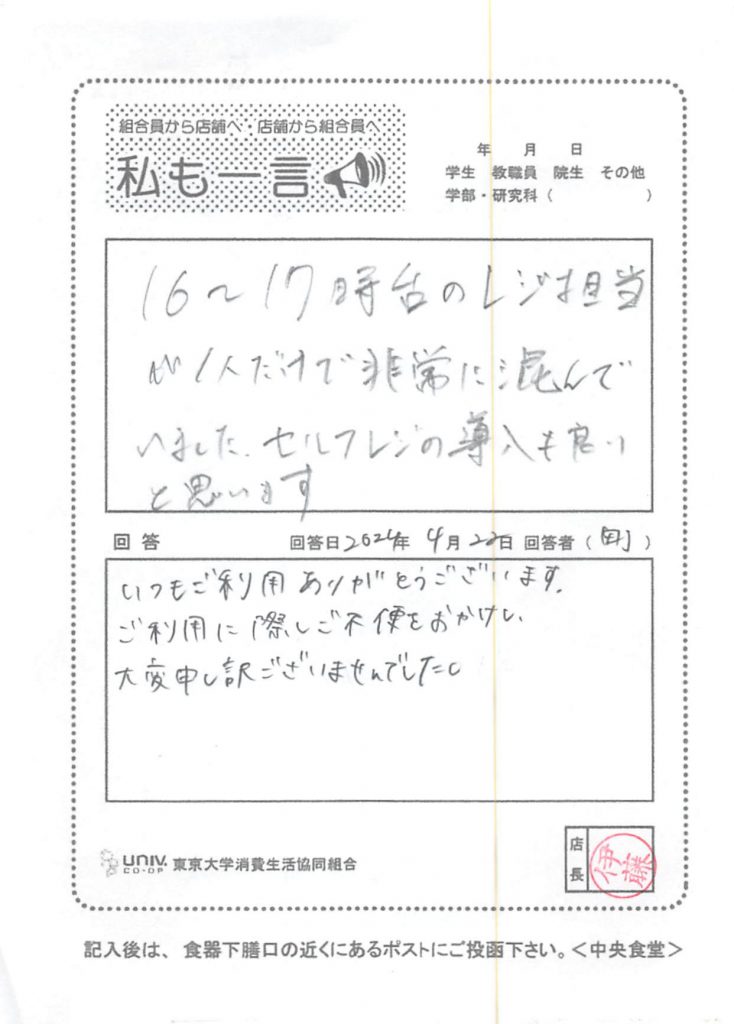 組合員から店舗へ・店舗から組合員へ
私も一言
年 月 日
学生 教職員 院生 その他
学部・研究科（ ）
16〜17時台のレジ担当
が1人だけで非常に混んで
いました、セルフレジの導入も良い
と思います
回答 回答日2024年 4月22日 回答者（ ）
いつもご利用ありがとうございます。
ご利用に際しご不便をおかけし、
大変申し訳ございませんでした。
UNIV. CO-OP 東京大学消費生活協同組合
店長
伊藤
記入後は、食器下膳口の近くにあるポストにご投函下さい。＜中央食堂＞